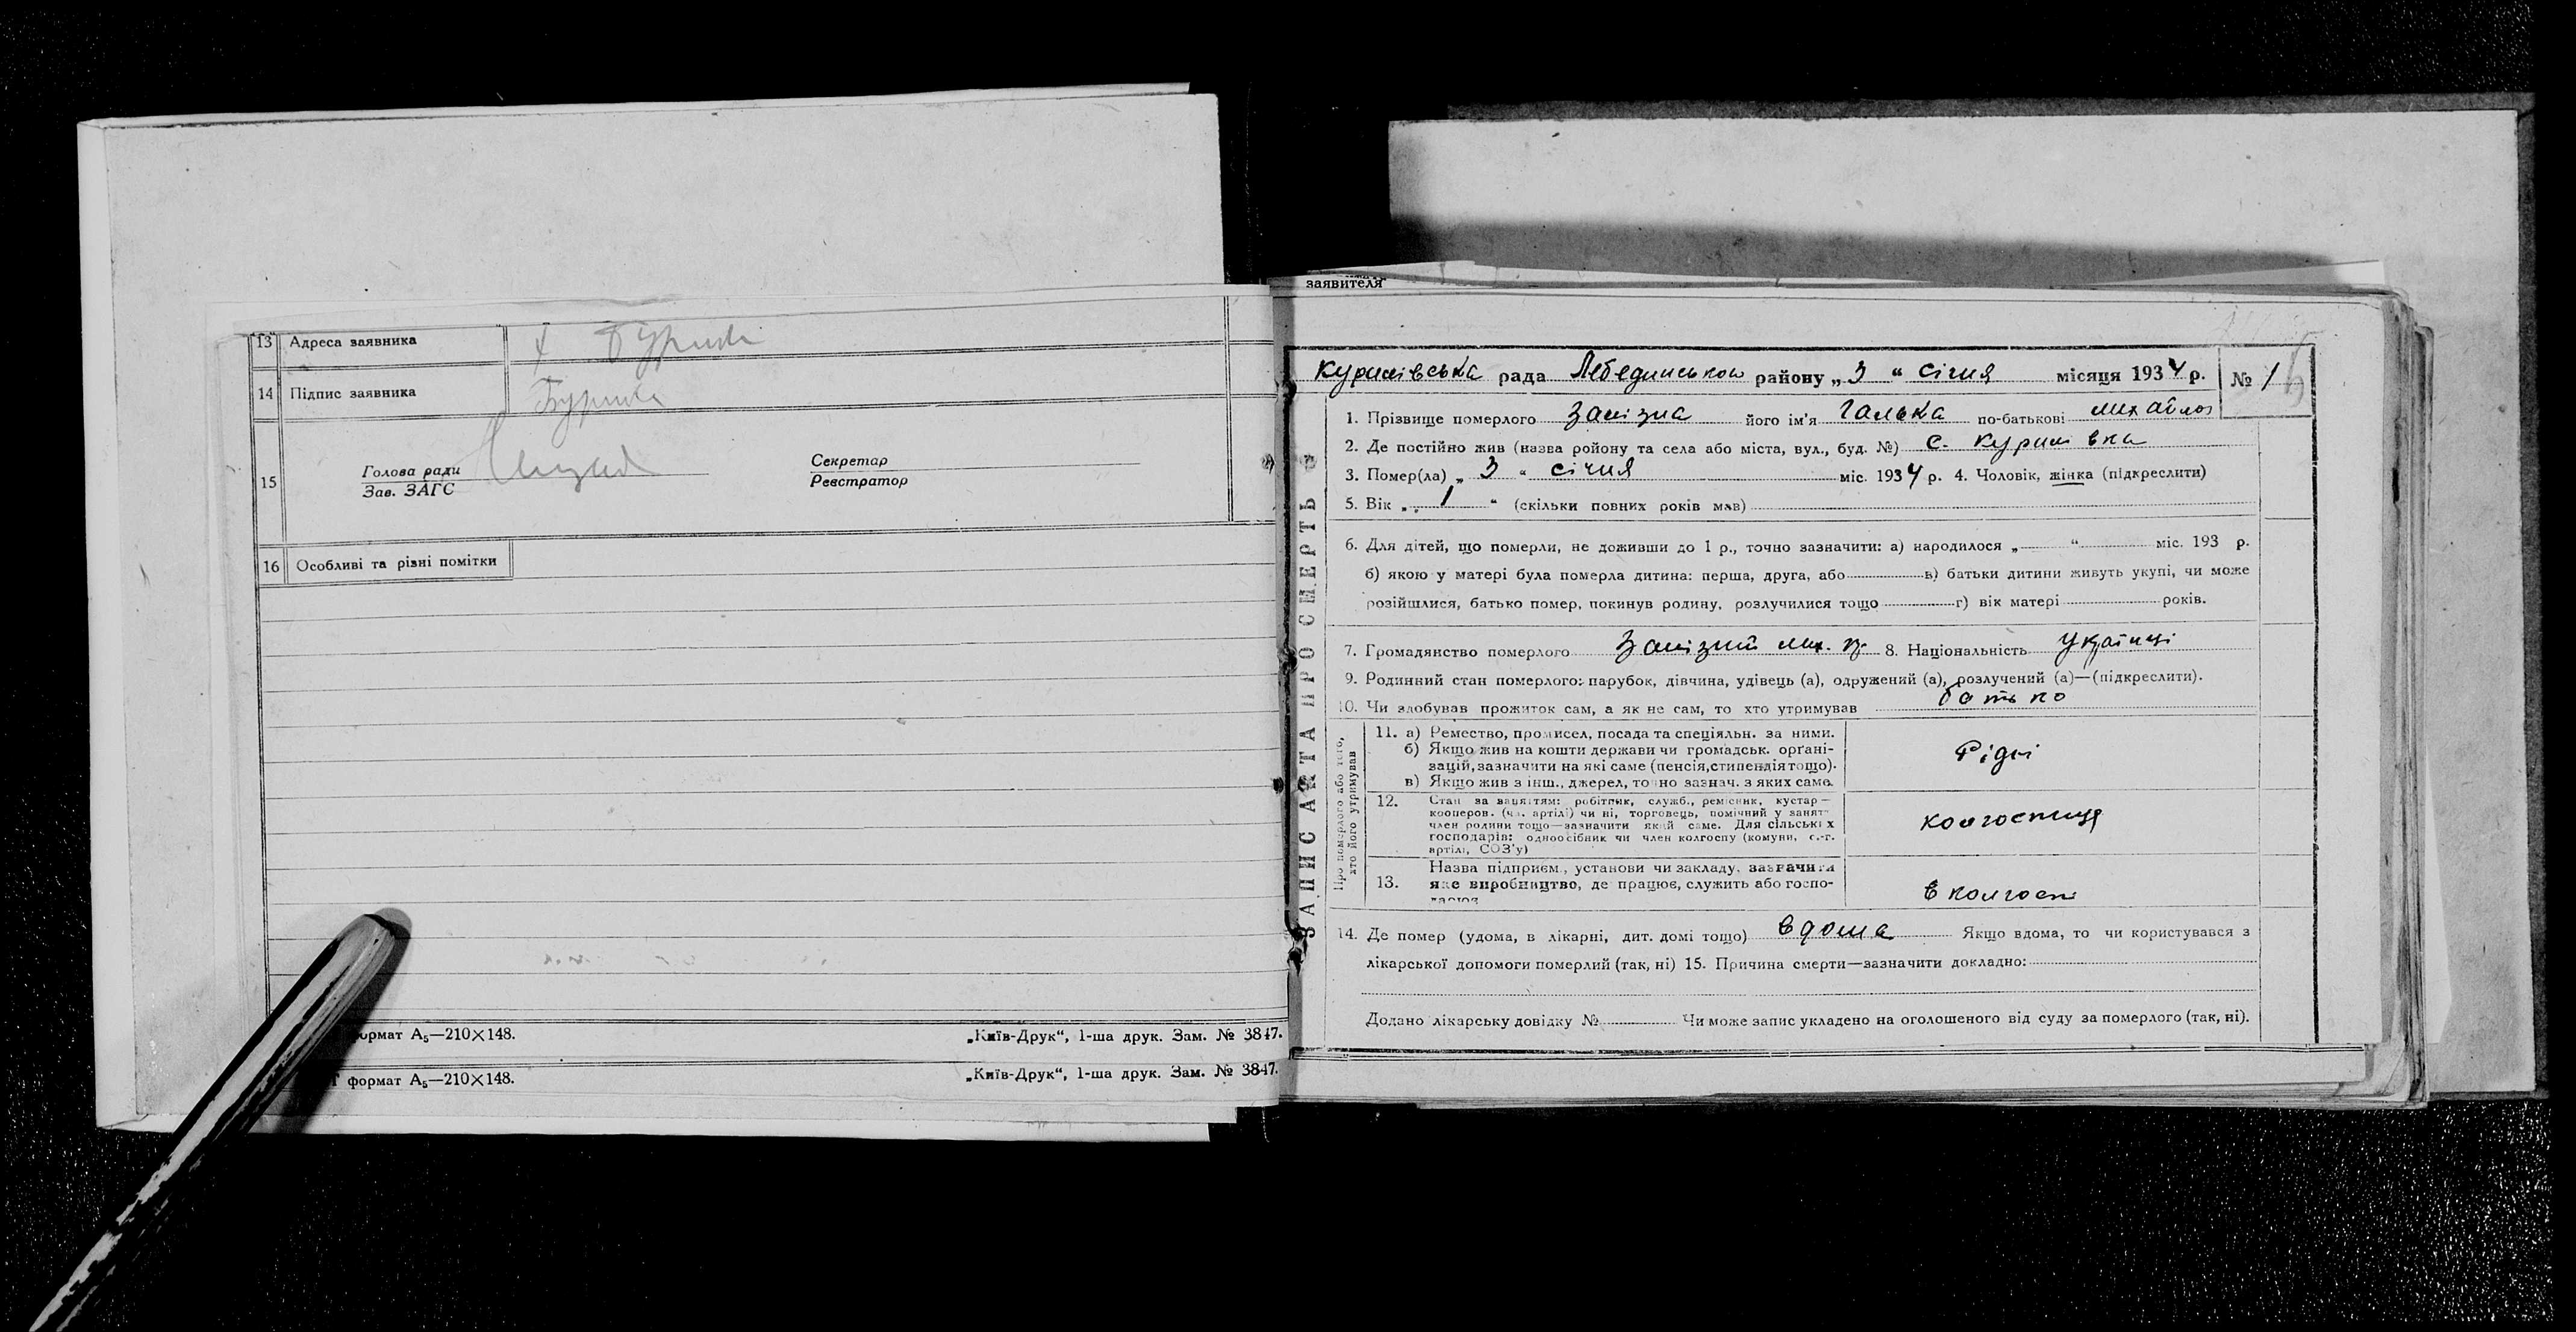 13 Адреса заявника
14 Підпис заявника
15
Голова ради
Зав. ЗАГС
Секретар
Реєстратор
16 Особливі та різні помітки
формат А₅—210×148.
„Київ-Друк“, 1-ша друк. Зам. № 3847.
формат А₅—210×148.
„Київ-Друк“, 1-ша друк. Зам. № 3847.
заявителя
ЗАПИС АКТА ПРО СМЕРТЬ
рада району „ 3 “ січня місяця 1934 р. № 1
1. Прізвище померлого Залізна його ім'я Галька по-батькові Михайлов
2. Де постійно жив (назва ройону та села або міста, вул., буд. №) с.
3. Помер(ла) „ 3 “ січня міс. 1934 р. 4. Чоловік, жінка (підкреслити)
5. Вік „ 1 “ (скільки повних років мав)
6. Для дітей, що померли, не доживши до 1 р., точно зазначити: а) народилося „ “ міс. 193 р.
б) якою у матері була померла дитина: перша, друга, або в) батьки дитини живуть укупі, чи може
розійшлися, батько помер, покинув родину, розлучилися тощо г) вік матері років.
7. Громадянство померлого Залізний Мих. 8. Національність Українці
9. Родинний стан померлого: парубок, дівчина, удівець (а), одружений (а), розлучений (а)—(підкреслити).
10. Чи здобував прожиток сам, а як не сам, то хто утримував батько
Про померлого або того,
хто його утримував
11. а) Ремество, промисел, посада та спеціяльн. за ними.
б) Якщо жив на кошти держави чи громадськ. орґані-
зацій, зазначити на які саме (пенсія, стипендія тощо).
в) Якщо жив з інш., джерел, точно зазнач. з яких саме.
Рідні
12. Стан за заняттям: робітник, служб., ремісник, кустар—
кооперов. (чл. артілі) чи ні, торговець, помічний у занят
член родини тощо—зазначити який саме. Для сільських
господарів: одноосібник чи член колгоспу (комуни, с.-г.
артілі, СОЗ'у)
колгоспиця
13. Назва підприєм., установи чи закладу, зазначити
яке виробництво, де працює, служить або госпо-
в колгоспі
14. Де помер (удома, в лікарні, дит. домі тощо) вдома Якщо вдома, то чи користувався з
лікарської допомоги померлий (так, ні) 15. Причина смерти—зазначити докладно:
Додано лікарську довідку № Чи може запис укладено на оголошеного від суду за померлого (так, ні).